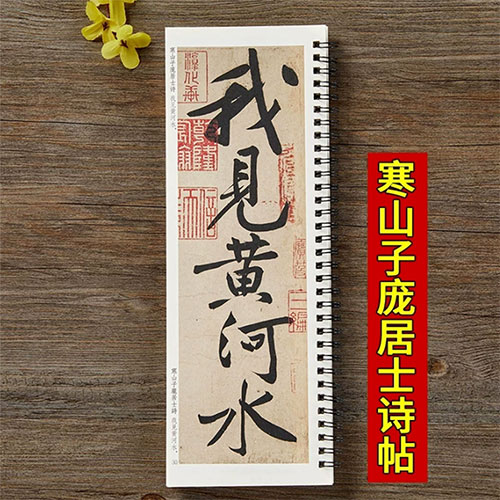 我見黄河水
寒山子龐居士詩 我見黄河水。
寒山子龐居士詩 我見黄河水。
寒山子庞居士诗帖